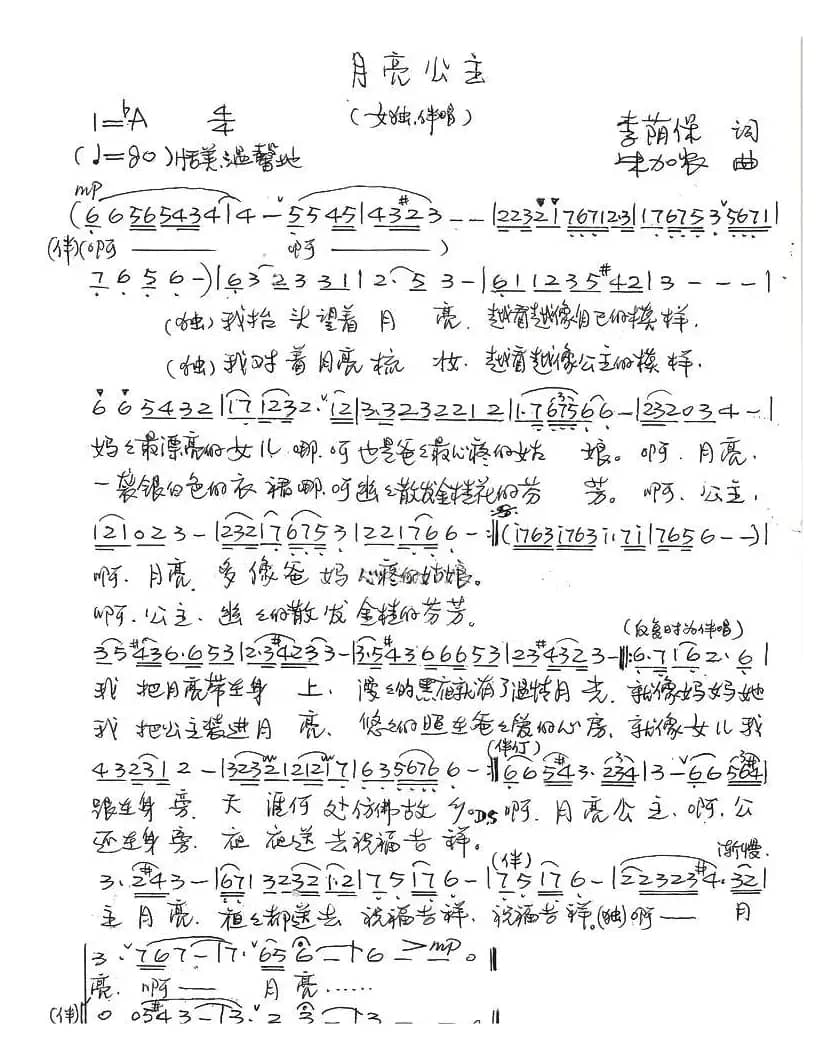 月亮公主
1=♭A 4/4
(女独、伴唱)
李荫保 词
(♩=80) 恬美、温馨地
朱加农 曲
mp
(6 6 5 6 5 4 3 4 | 4 - 5 5 4 5 | 4 3 #2 3 - - | 2 2 3 2 1 7 6 7 1 2·3 | 1 7 6 7 5 3 5 6 7 1 |
(伴)(啊 —— 啊 —— )
7 6 5 6 -) | 6 3 2 3 3 1 | 2· 5 3 - | 6 1 1 2 3 5 #4 2 | 3 - - - |
(独)我抬头望着月亮,越看越像自己的模样,
(独)我对着月亮梳妆,越看越像公主的模样,
6 6 5 4 3 2 | 1 7 1 2 3 2· 1 2 | 3·3 2 3 2 2 1 2 | 1·7 6 7 5 6 6 - | 2 3 2 0 3 4 - |
妈妈最漂亮的女儿哪,呵也是爸爸最心疼的姑娘。啊,月亮,
一袭银白色的衣裙哪,呵幽幽散发金桂花的芬芳。啊,公主,
1 2 1 0 2 3 - | 2 3 2 1 7 6 7 5 3 | 2 2 1 7 6 6 - :‖ (1 7 6 3 1 7 6 3 1· 7 1 | 7 6 5 6 - -) |
啊,月亮,多像爸妈心疼的姑娘。
啊,公主,幽幽的散发金桂的芬芳。
(反复时为伴唱)
3 5 #4 3 6·6 5 3 | 2·3 #4 2 3 3 - | 3·5 #4 3 6 6 6 5 3 | 2 3 #4 3 2 3 - ‖: 6·7 1 6 2· 6 |
我把月亮带在身上,漫漫的黑夜就有了温情月光,就像妈妈她
我把公主装进月亮,悠悠的照在爸爸爱的心房,就像女儿我
(伴ㄒ)
4 3 2 3 1 2 - | 3 2 3 2 1 2 1 2 1 7 | 6 3 5 6 7 6 6 - :‖ 6 6 5 #4 3· 2 3 4 | 3 - 6 6 5 6 #4 |
跟在身旁,天涯何处仿佛故乡。D.S 啊,月亮公主,啊,公
还在身旁,夜夜送去祝福吉祥。
(伴) 渐慢
3· 2 #4 3 - | 6 7 1 3 2 3 2 1·2 | 7 5 1 7 6 - | 7 5 1 7 6 - | 2 2 3 2 3 #4· 3 2 |
主月亮,祖祖都送去祝福吉祥,祝福吉祥。(独)啊——月
3· 7 6 7 - | 7· 6 5 6 - | 6 - - 0 ‖ mp
亮,啊—— 月亮……
(伴) 0 0 5 #4 3 - | 3· 2 3 - | 3 - - - ‖